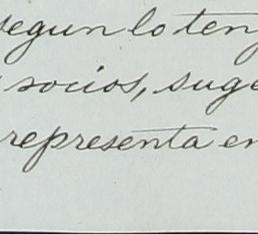 segun lo teng
socios, suge
representa en